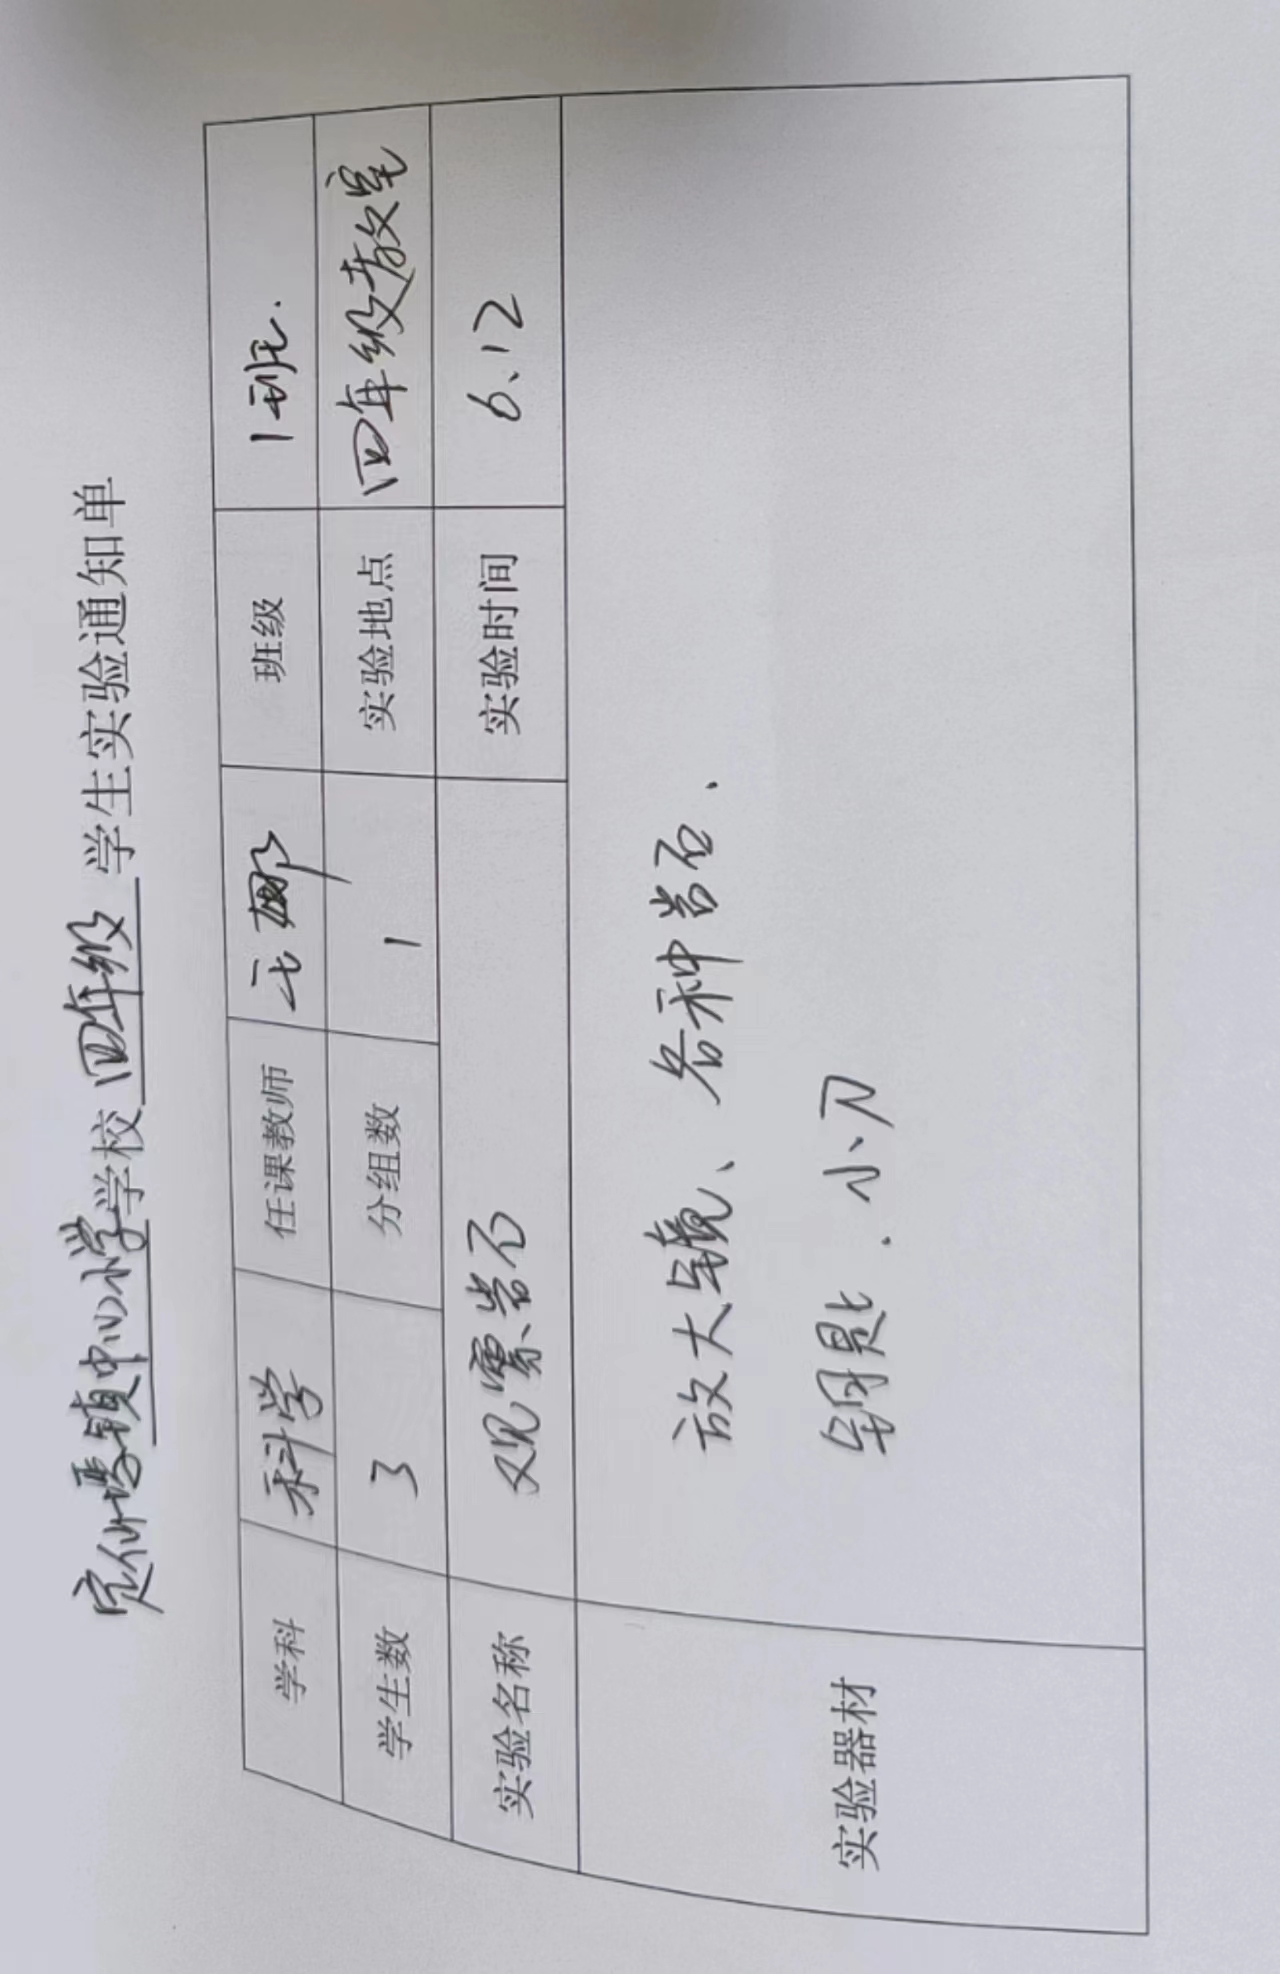 定仙墕镇中心小学学校 四年级 学生实验通知单
学科 科学 任课教师 娜 班级 1班.
学生数 3 分组数 1 实验地点 四年级教室
实验名称 观察岩石 实验时间 6、12
实验器材 放大镜、各种岩石、
钥匙、小刀